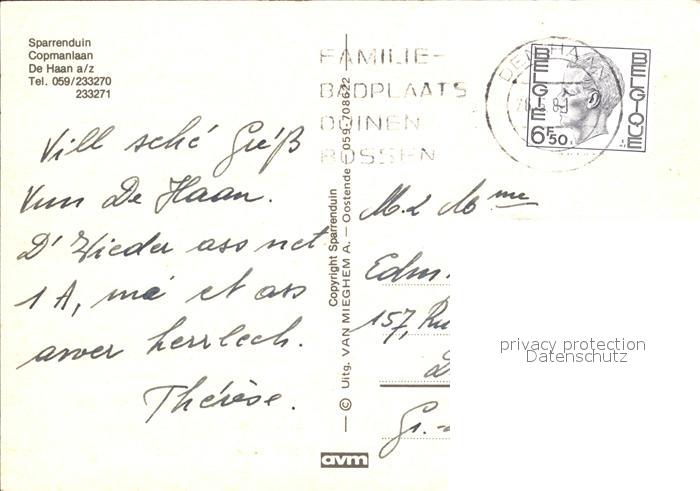 Sparrenduin
Copmanlaan
De Haan a/z
Tel. 059/233270
233271
Vill sché Gréiß
Vun De Haan.
D' Wieder ass net
1 A, mä et ass
awer herrlech.
Thérèse.
Copyright Sparrenduin
© Uitg. VAN MIEGHEM A. — Oostende — 059/708622
avm
FAMILIE-
BADPLAATS
DUINEN
BOSSEN
DE HAAN
BELGIË
BELGIQUE
6F50
M. & Mme
Edm.
157, Ru
Gr.-
privacy protection
Datenschutz